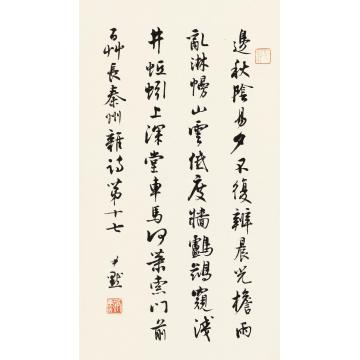 邊秋陰易夕不復辨晨光檐雨
亂淋幔山雲低度墻鸕鷀窺淺
井蚯蚓上深堂車馬何蕭索門前
百艸長秦州雜詩第十七 尹默